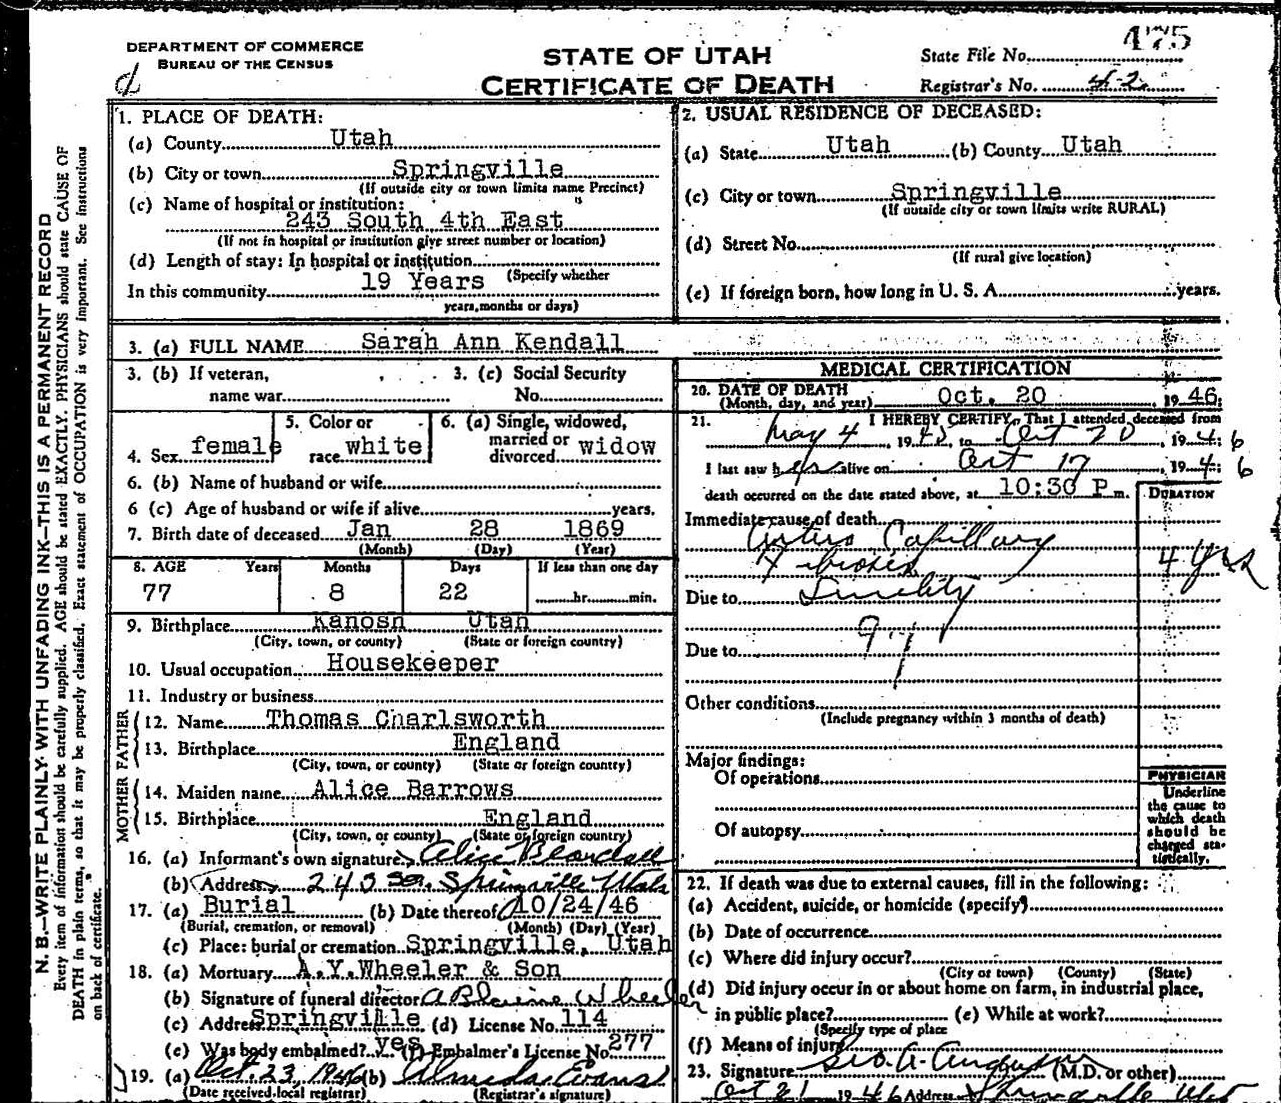 DEPARTMENT OF COMMERCE
BUREAU OF THE CENSUS
STATE OF UTAH
CERTIFICATE OF DEATH
State File No. 475
Registrar's No. 42
N. B.—WRITE PLAINLY WITH UNFADING INK—THIS IS A PERMANENT RECORD
Every item of information should be carefully supplied. AGE should be stated EXACTLY. PHYSICIANS should state CAUSE OF
DEATH in plain terms, so that it may be properly classified. Exact statement of OCCUPATION is very important. See instructions
on back of certificate.
1. PLACE OF DEATH:
(a) County Utah
(b) City or town Springville
(If outside city or town limits name Precinct)
(c) Name of hospital or institution:
243 South 4th East
(If not in hospital or institution give street number or location)
(d) Length of stay: In hospital or institution
(Specify whether
In this community 19 Years
years, months or days)
2. USUAL RESIDENCE OF DECEASED:
(a) State Utah (b) County Utah
(c) City or town Springville
(If outside city or town limits write RURAL)
(d) Street No.
(If rural give location)
(e) If foreign born, how long in U. S. A. years.
3. (a) FULL NAME Sarah Ann Kendall
3. (b) If veteran, 3. (c) Social Security
name war No.
4. Sex female 5. Color or race white 6. (a) Single, widowed, married or divorced widow
6. (b) Name of husband or wife
6 (c) Age of husband or wife if alive years.
7. Birth date of deceased Jan 28 1869
(Month) (Day) (Year)
8. AGE Years Months Days If less than one day
77 8 22 hr. min.
9. Birthplace Kanosh Utah
(City, town, or county) (State or foreign country)
10. Usual occupation Housekeeper
11. Industry or business
FATHER
12. Name Thomas Charlsworth
13. Birthplace England
(City, town, or county) (State or foreign country)
MOTHER
14. Maiden name Alice Barrows
15. Birthplace England
(City, town, or county) (State or foreign country)
16. (a) Informant's own signature Alice
(b) Address 243 So. Springville Utah
17. (a) Burial (b) Date thereof 10/24/46
(Burial, cremation, or removal) (Month) (Day) (Year)
(c) Place: burial or cremation Springville, Utah
18. (a) Mortuary A.Y.Wheeler & Son
(b) Signature of funeral director A Blaine Wheeler
(c) Address Springville (d) License No. 114
(e) Was body embalmed? yes (f) Embalmer's License No. 277
19. (a) Oct. 23, 1946 (b) Almeda Evans
(Date received local registrar) (Registrar's signature)
MEDICAL CERTIFICATION
20. DATE OF DEATH
(Month, day, and year) Oct. 20, 19 46;
21. I HEREBY CERTIFY, That I attended deceased from
May 4, 19 to Oct 20, 19 46
I last saw her alive on Oct 17, 19 46
death occurred on the date stated above, at 10:30 P m.
DURATION
Immediate cause of death
Arterio Capillary
Fibrosis 4 yrs
Due to Senility
97
Due to
Other conditions
(Include pregnancy within 3 months of death)
Major findings:
Of operations
Of autopsy
PHYSICIAN
Underline
the cause to
which death
should be
charged sta-
tistically.
22. If death was due to external causes, fill in the following:
(a) Accident, suicide, or homicide (specify)
(b) Date of occurrence
(c) Where did injury occur?
(City or town) (County) (State)
(d) Did injury occur in or about home on farm, in industrial place,
in public place? (e) While at work?
(Specify type of place
(f) Means of injury
23. Signature Geo. A. Anderson (M.D. or other)
Oct 21 19 46 Address Springville Utah